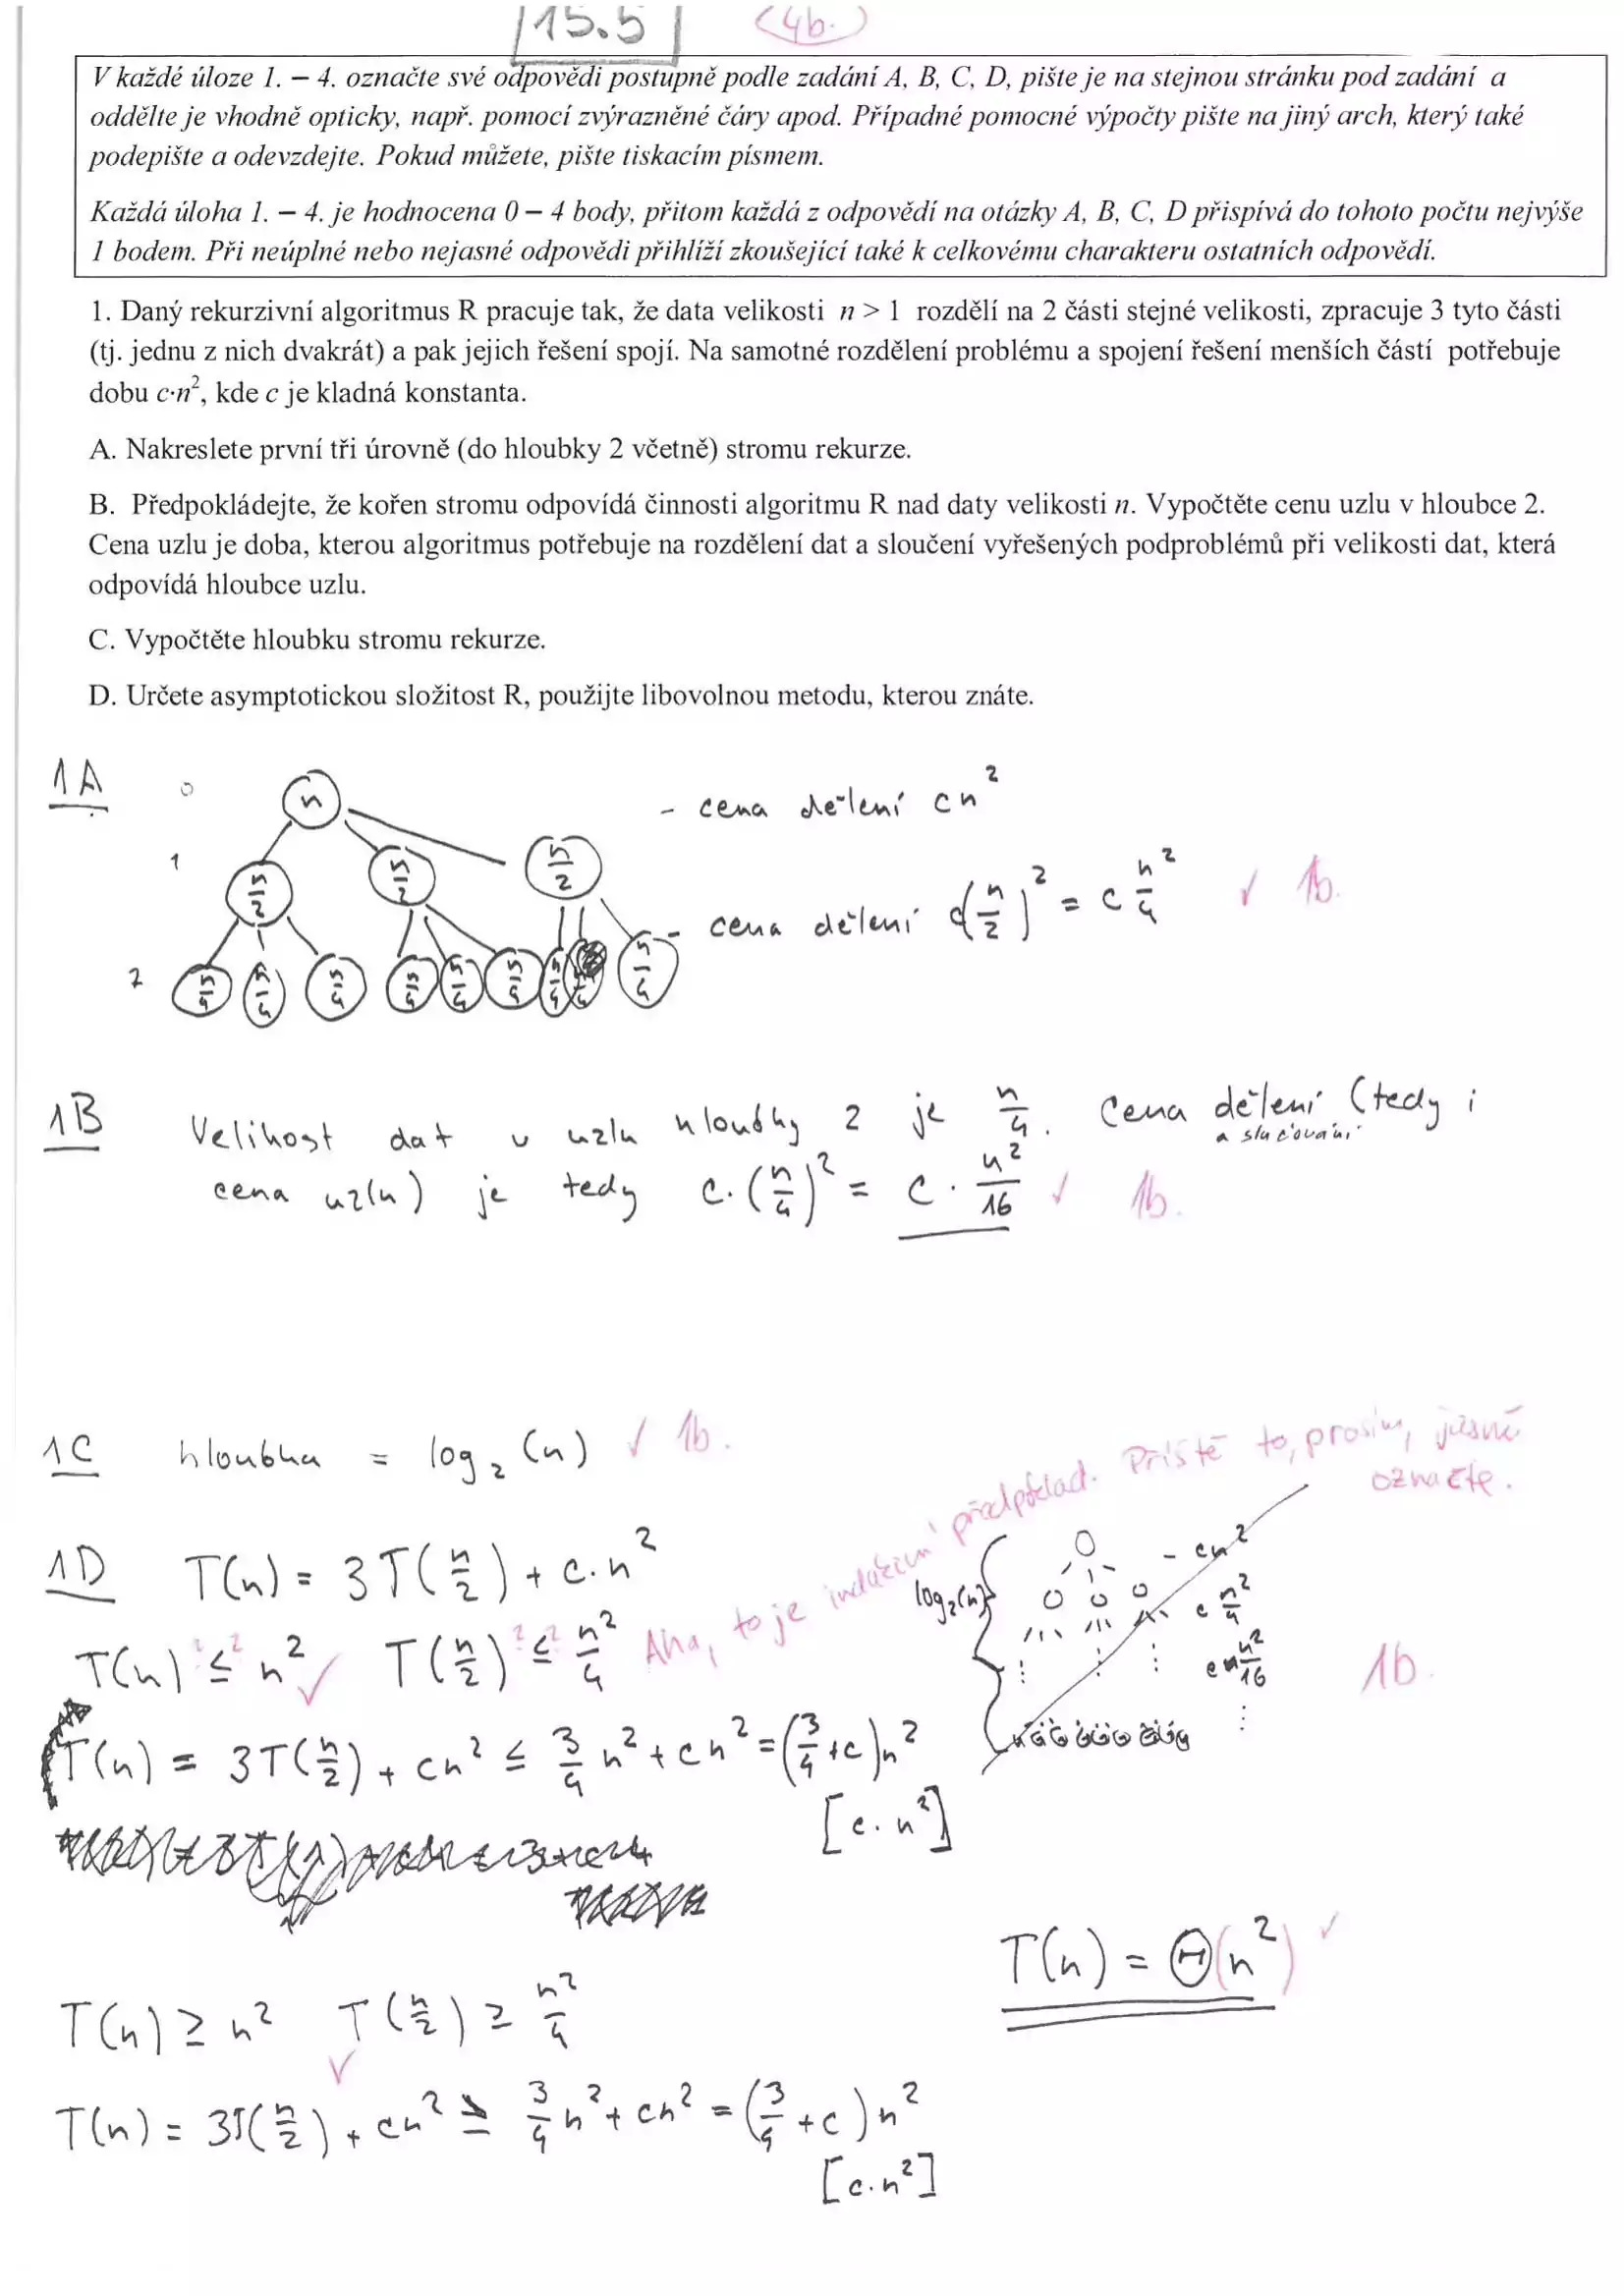 15.5 (4b.)
V každé úloze 1. – 4. označte své odpovědi postupně podle zadání A, B, C, D, pište je na stejnou stránku pod zadání a
oddělte je vhodně opticky, např. pomocí zvýrazněné čáry apod. Případné pomocné výpočty pište na jiný arch, který také
podepište a odevzdejte. Pokud můžete, pište tiskacím písmem.
Každá úloha 1. – 4. je hodnocena 0 – 4 body, přitom každá z odpovědí na otázky A, B, C, D přispívá do tohoto počtu nejvýše
1 bodem. Při neúplné nebo nejasné odpovědi přihlíží zkoušející také k celkovému charakteru ostatních odpovědí.
1. Daný rekurzivní algoritmus R pracuje tak, že data velikosti n > 1 rozdělí na 2 části stejné velikosti, zpracuje 3 tyto části
(tj. jednu z nich dvakrát) a pak jejich řešení spojí. Na samotné rozdělení problému a spojení řešení menších částí potřebuje
dobu c·n², kde c je kladná konstanta.
A. Nakreslete první tři úrovně (do hloubky 2 včetně) stromu rekurze.
B. Předpokládejte, že kořen stromu odpovídá činnosti algoritmu R nad daty velikosti n. Vypočtěte cenu uzlu v hloubce 2.
Cena uzlu je doba, kterou algoritmus potřebuje na rozdělení dat a sloučení vyřešených podproblémů při velikosti dat, která
odpovídá hloubce uzlu.
C. Vypočtěte hloubku stromu rekurze.
D. Určete asymptotickou složitost R, použijte libovolnou metodu, kterou znáte.
1A 0 n - cena dělení cn²
1 n/2 n/2 n/2
- cena dělení c(n/2)² = c n²/4 ✓ 1b.
2 n/4 n/4 n/4 n/4 n/4 n/4 n/4 n/4 n/4
1B Velikost dat v uzlu hloubky 2 je n/4. Cena dělení (tedy i
a slučování
cena uzlu) je tedy c·(n/4)² = c · n²/16 ✓ 1b.
1C hloubka = log₂(n) ✓ 1b.
Aha, to je indukční předpoklad. Příště to, prosím, jasně
označte.
1D T(n) = 3T(n/2) + c·n²
log₂(n) - cn²
c n²/4
c n²/16
T(n) ≤ n² ✓ T(n/2) ≤ n²/4
1b.
T(n) = 3T(n/2) + cn² ≤ 3/4 n² + cn² = (3/4 + c)n²
[c·n²]
T(n) = Θ(n²) ✓
T(n) ≥ n² T(n/2) ≥ n²/4
✓
T(n) = 3T(n/2) + cn² ≥ 3/4 n² + cn² = (3/4 + c)n²
[c·n²]